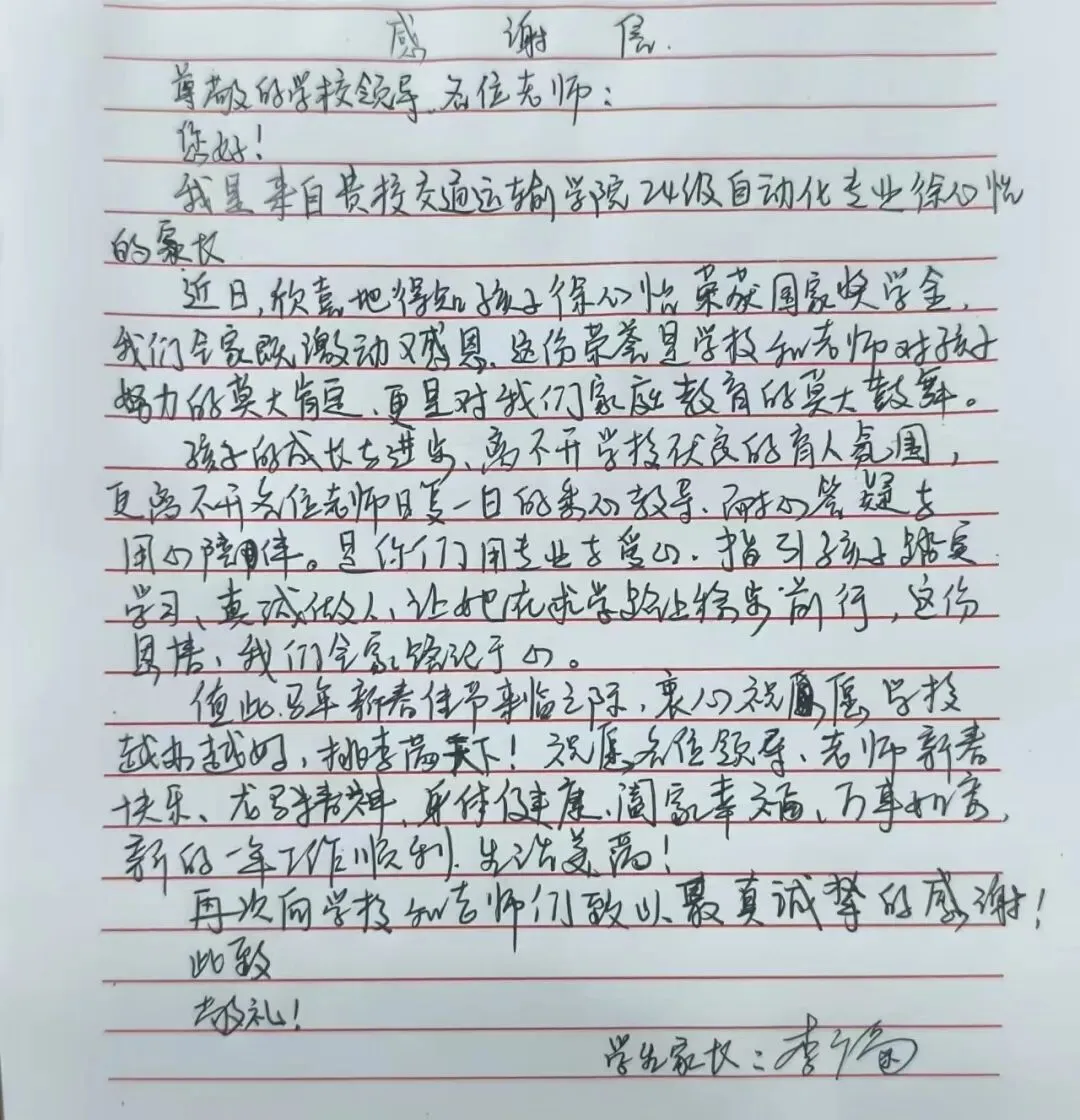 感 谢 信
尊敬的学校领导、各位老师：
您好！
我是来自贵校交通运输学院24级自动化专业徐心怡
的家长
近日，欣喜地得知孩子徐心怡荣获国家奖学金，
我们全家既激动又感恩。这份荣誉是学校和老师对孩子
努力的莫大肯定、更是对我们家庭教育的莫大鼓舞。
孩子的成长与进步、离不开学校优良的育人氛围，
更离不开各位老师日复一日的悉心教导、耐心答疑与
用心陪伴。是你们用专业与爱心、指引孩子踏实
学习、真诚做人、让她在求学路上稳步前行，这份
恩情、我们全家铭记于心。
值此马年新春佳节来临之际、衷心祝愿学校
越办越好，桃李满天下！祝愿各位领导、老师新春
快乐、龙马精神、身体健康、阖家幸福、万事如意，
新的一年工作顺利、生活美满！
再次向学校和老师们致以最真诚挚的感谢！
此致
敬礼！
学生家长：李